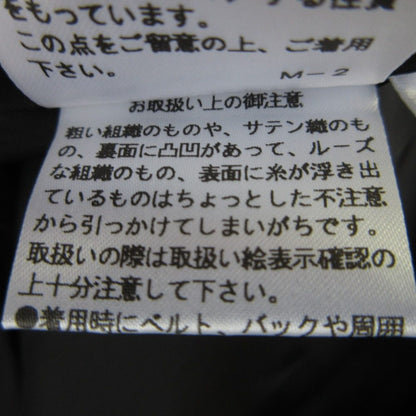 をもっています。
この点をご留意の上、ご着用
下さい。
M-2
お取扱い上の御注意
粗い組織のものや、サテン織のも
の、裏面に凸凹があって、ルーズ
な組織のもの、表面に糸が浮き出
ているものはちょっとした不注意
から引っかけてしまいがちです。
取扱いの際は取扱い絵表示確認の
上十分注意して下さい。
●着用時にベルト、バックや周囲